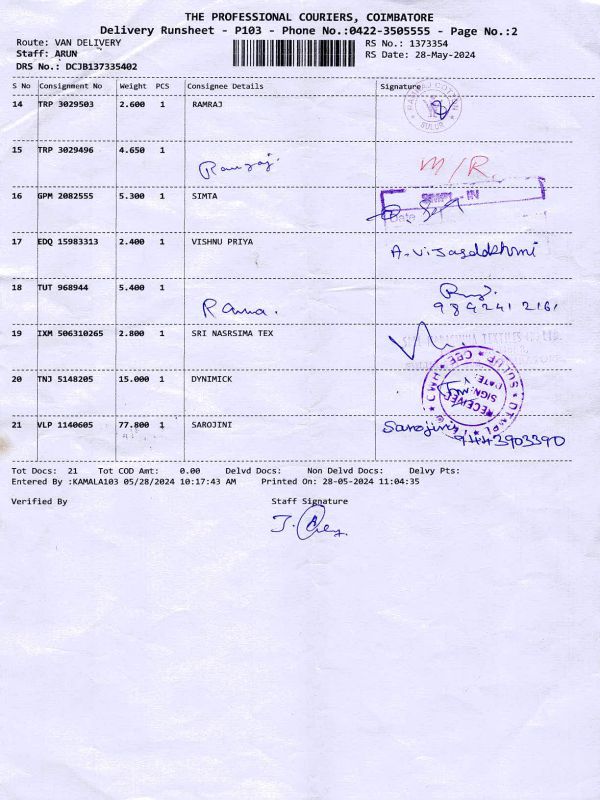 THE PROFESSIONAL COURIERS, COIMBATORE
Delivery Runsheet - P103 - Phone No.:0422-3505555 - Page No.:2
Route: VAN DELIVERY RS No.: 1373354
Staff: ARUN RS Date: 28-May-2024
DRS No.: DCJB137335402
S No Consignment No Weight PCS Consignee Details Signature
14 TRP 3029503 2.600 1 RAMRAJ
RAMRAJ COTTON
SULUR
15 TRP 3029496 4.650 1
Ramraj. M/R.
16 GPM 2082555 5.300 1 SIMTA
IN
Date
17 EDQ 15983313 2.400 1 VISHNU PRIYA
A. Vijayalakhmi
18 TUT 968944 5.400 1
Rama. 984241 2161
19 IXM 506310265 2.800 1 SRI NASRSIMA TEX
20 TNJ 5148205 15.000 1 DYNIMICK
CWH CBE SULUR
RECEIVED
SIGN:
DATE:
21 VLP 1140605 77.800 1 SAROJINI
Sarojini
9443903390
Tot Docs: 21 Tot COD Amt: 0.00 Delvd Docs: Non Delvd Docs: Delvy Pts:
Entered By :KAMALA103 05/28/2024 10:17:43 AM Printed On: 28-05-2024 11:04:35
Verified By Staff Signature